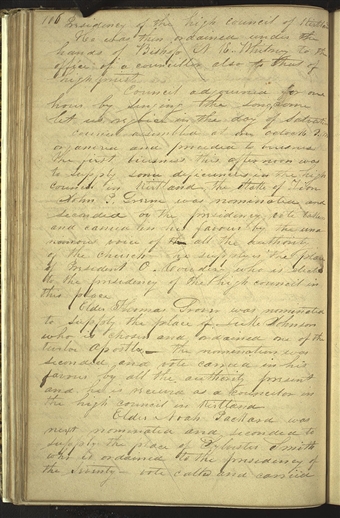 116 Presidency of the high council of Kirtland
He was then ordained under the
hands of Bishop N. K. Whitney to the
office of a councillor also to that of
high priest
Council adjourned for one
hour by singing the song, Come
let us rejoice in the day of salvation
Council assembled at one oclock
organized and proceeded to business
The first business this afternoon was
to supply some deficiencies in the high
council in Kirtland, the Stake of Zion
John P. Greene was nominated and
seconded by the presidency, vote called
and carried in his favour by the una
nimous voice of all the authority
of the church he supplying the place
of President O. Cowdery who is elected
to the presidency of the high council in
this place
Elder Thomas Grover was nominated
to supply the place of Luke Johnson
who is chosen and ordained one of the
twelve Apostles — the nomination was
seconded and vote carried in his
favour by all the authority present
and he is received as a councillor in
the high council in Kirtland
Elder Noah Packard was
next nominated and seconded to
supply the place of Sylvester Smith
who is ordained to the presidency of
the Seventy — vote called and carried